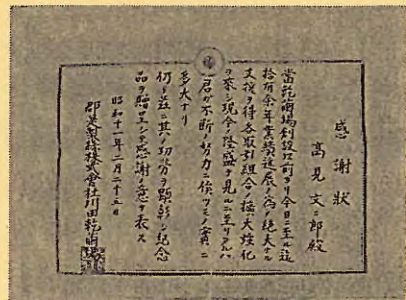 感謝狀
高見文二郎殿
當乾繭場創設以前ヨリ今日ニ至ル迄
拾有余年業績進展ノ為メ絶大ナル
支援ヲ得各取引組合ノ擴大強化
ヲ來シ現今ノ隆盛ヲ見ルニ至リタルハ
君ガ不断ノ努力ニ俟ツモノ實ニ
多大ナリ
仍テ茲ニ其ノ功労ヲ顕彰シ紀念
品ヲ贈呈シテ感謝ノ意ヲ表ス
昭和十一年二月二十五日
郡是製絲株式會社川田乾繭場